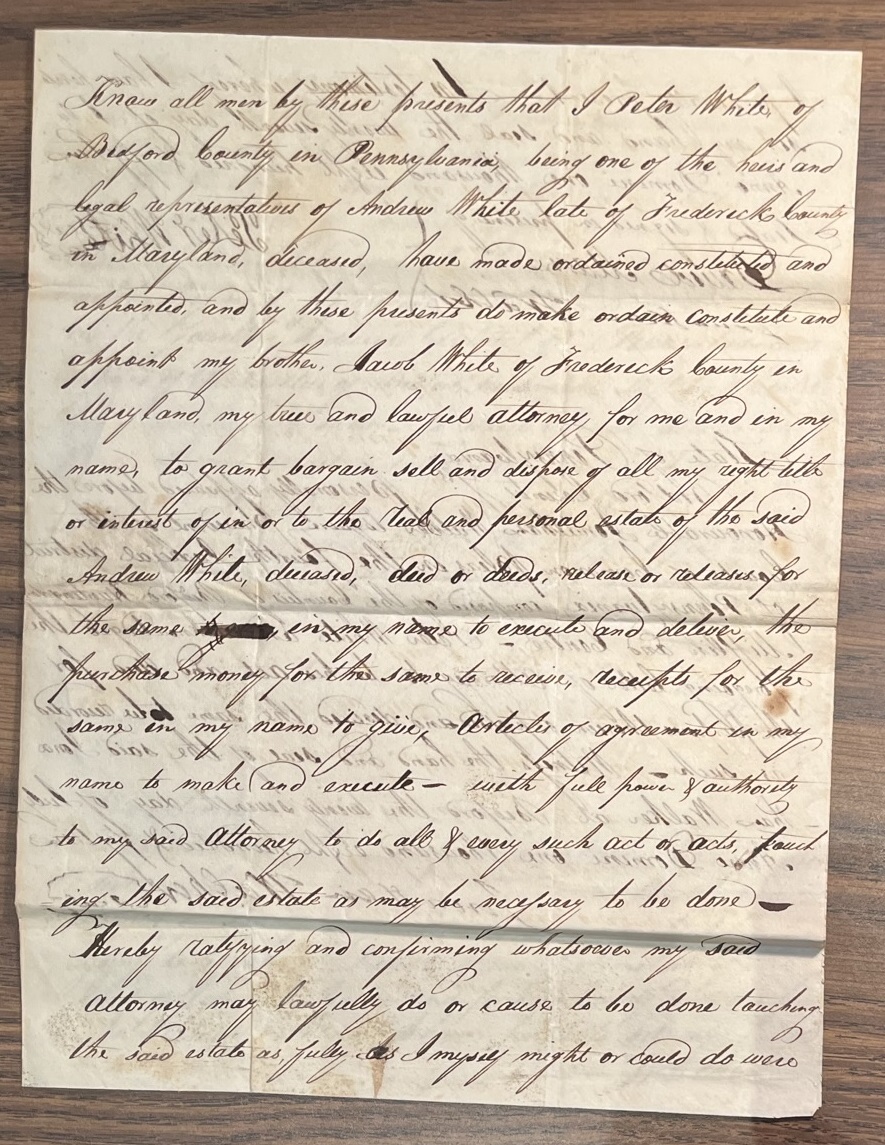 Know all men by these presents that I Peter White, of
Bedford County in Pennsylvania, being one of the heirs and
legal representatives of Andrew White late of Frederick County
in Maryland, deceased, have made ordained constituted and
appointed, and by these presents do make ordain constitute and
appoint my brother, Jacob White of Frederick County in
Maryland, my true and lawful attorney for me and in my
name, to grant bargain sell and dispose of all my right title
or interest of in or to the real and personal estate of the said
Andrew White, deceased, deed or deeds, release or releases for
the same in my name to execute and deliver, the
purchase money for the same to receive, receipts for the
same in my name to give, Articles of agreement in my
name to make and execute — with full power & authority
to my said Attorney to do all & every such act or acts, touch
ing the said estate as may be necessary to be done —
Hereby ratifying and confirming whatsoever my said
Attorney may lawfully do or cause to be done touching
the said estate as fully as I myself might or could do were